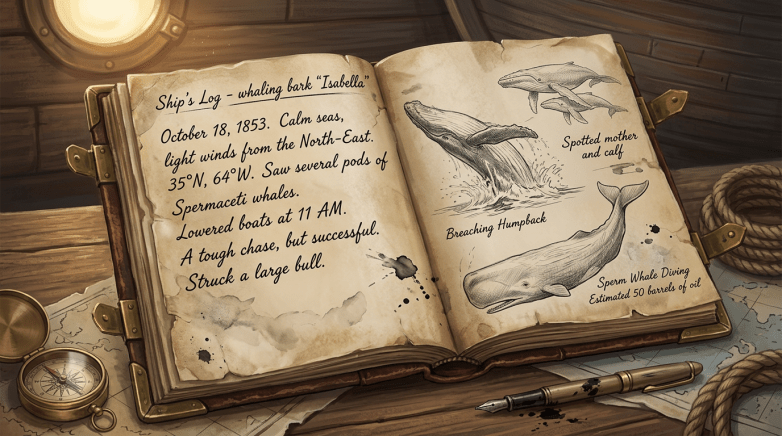 Ship's Log – whaling bark "Isabella"
October 18, 1853. Calm seas,
light winds from the North-East.
35°N, 64°W. Saw several pods of
Spermaceti whales.
Lowered boats at 11 AM.
A tough chase, but successful.
Struck a large bull.
Spotted mother
and calf
Breaching Humpback
Sperm Whale Diving
Estimated 50 barrels of oil